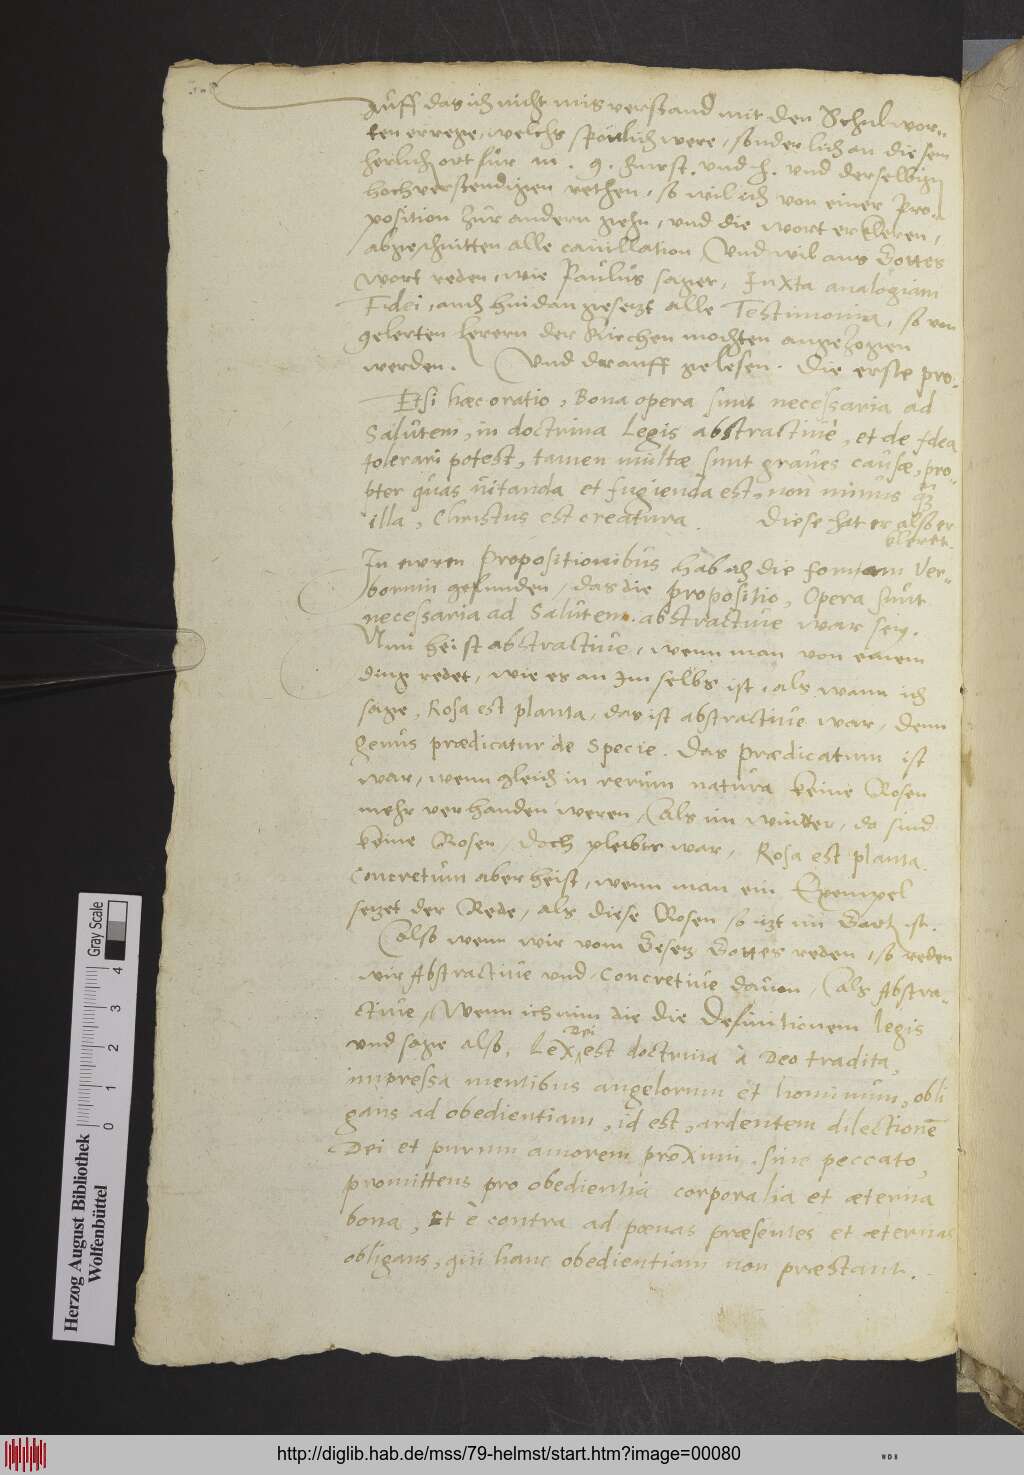 Auff das ich nicht misverstand mit den Schulwor-
ten errege, welchs spötlich were, sonderlich an diesem
herlich ort für m. g. Fürst. und h. und derselbign
hochverstendigen rethen, so wil ich von einer Pro-
position zur andern gehn, und die wort erkleren,
abgeschnitten alle cavillation, Und wil aus Gottes
wort reden, wie Paulus saget, Juxta analogiam
Fidei, auch hindangesetzt alle Testimonia, so von
gelerten Lerern der Kirchen mochten angezogen
werden. Und darauff gelesen. Die erste pro-
Etsi hæc oratio, Bona opera sunt necessaria ad
Salutem, in doctrina Legis abstractive, et de Idea
tolerari potest, tamen multæ sunt graves causæ, pro-
pter quas vitanda et fugienda est, non minus q̃
illa, Christus est creatura. Diese hat er also er
kleret.
In ewren Propositionibus hab ich die formam Ver-
borum gefunden, das die propositio, Opera sunt
necessaria ad Salutem. abstractive war sey.
Nun heist abstractive, wenn man von einem
ding redet, wie es an Jm selbs ist, als wann ich
sage, Rosa est planta, das ist abstractive war, denn
Genus prædicatur de Specie. Das Prædicatum ist
war, wenn gleich in rerum natura keine Rosen
mehr verhanden weren, Als im winter, da sind
keine Rosen, Doch pleibts war, Rosa est planta.
Concretum aber heist, wenn man ein Exempel
setzet der Rede, als diese Rosen so itzt im Gart ist.
Also wenn wir vom Gesetz Gottes reden, so reden
wir Abstractive und Concretive davon, Als Abstra-
ctive, Wenn ich nim die die Definitionem legis
und sage also, Lex Dei est doctrina à Deo tradita,
impressa mentibus angelorum et hominum, obli
gans ad obedientiam, id est, ardentem dilectionē
Dei et purum amorem proximi. sine peccato,
promittens pro obedientia corporalia et æterna
bona, Et è contra ad pœnas præsentes et æternas
obligans, qui hanc obedientiam non præstant.
Herzog August Bibliothek
Wolfenbüttel
Gray Scale
0 1 2 3 4
http://diglib.hab.de/mss/79-helmst/start.htm?image=00080